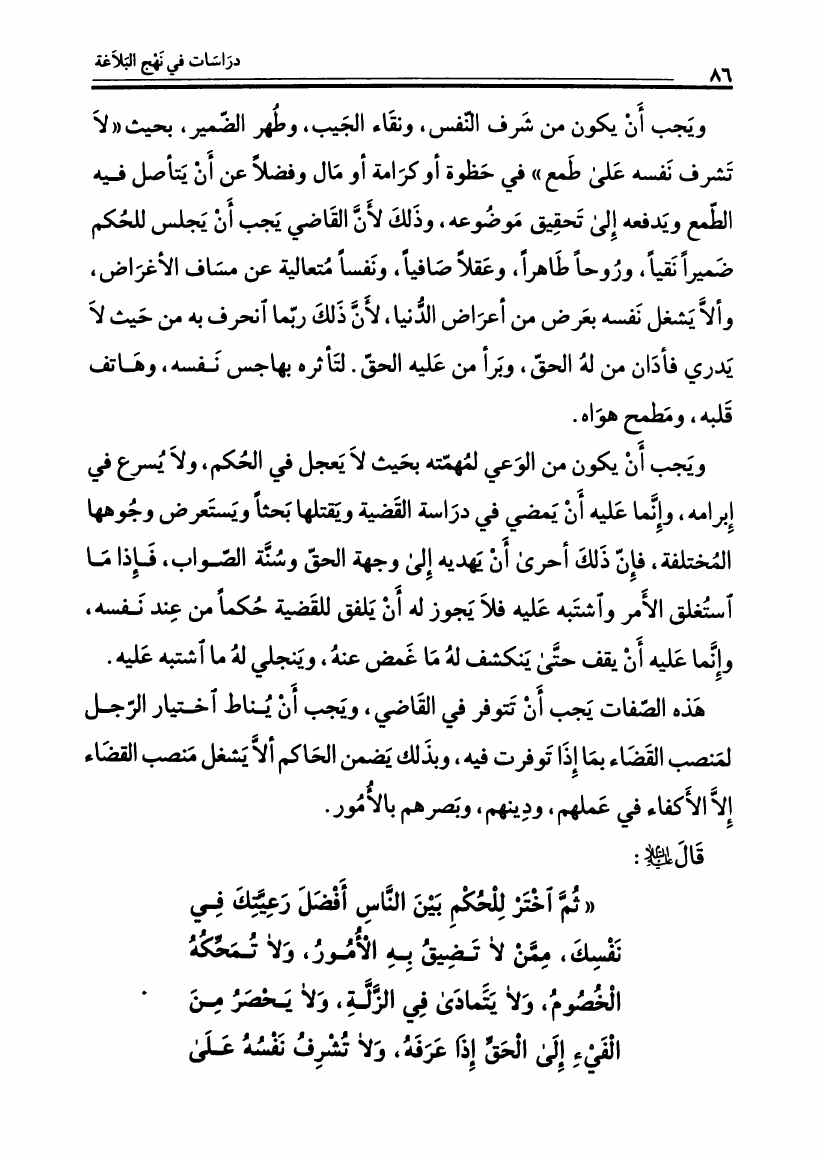 دراسَات في نَهْج البَلاَغة
٨٦
ويَجب أَنْ يكون من شَرف النّفس، ونقَاء الجَيب، وطُهر الضّمير، بحيث «لاَ
تَشرف نَفسه عَلىٰ طَمع» في حَظوة أو كرَامة أو مَال وفضلاً عن أَنْ يَتأصل فـيه
الطّمع ويَدفعه إلىٰ تَحقِيق مَوضُوعه، وذَلكَ لأنَّ القَاضي يَجب أَنْ يَجلس للحُكم
ضَميراً نَقياً، ورُوحاً طَاهراً، وعَقلاً صَافياً، ونَفساً مُتعالية عن مسَاف الأغرَاض،
وألاَّ يَشغل نَفسه بعَرض من أعرَاض الدُّنيا، لأنَّ ذَلكَ ربّما ٱنحرف به من حَيث لاَ
يَدري فأدَان من لهُ الحقّ، وبَرأ من عَليه الحقّ. لتَأثره بهاجس نَـفسه، وهَـاتف
قَلبه، ومَطمح هوَاه.
ويَجب أَنْ يكون من الوَعي لمُهمّته بحَيث لاَ يَعجل في الحُكم، ولاَ يُسرع في
إبرامه، وإنَّما عَليه أَنْ يَمضي في درَاسة القَضية ويَقتلها بَحثاً ويَستَعرض وجُوهها
المُختلفة، فإنّ ذَلكَ أحرىٰ أَنْ يَهديه إلىٰ وجهة الحقّ وسُنَّة الصّـواب، فَـإذا مَـا
ٱستُغلق الأمر وٱشتَبه عَليه فلاَ يَجوز له أَنْ يَلفق للقَضية حُكماً من عِند نَـفسه،
وإنَّما عَليه أَنْ يقف حتَّىٰ يَنكشف لهُ مَا غَمض عنهُ، ويَنجلي لهُ ما ٱشتبه عَليه.
هَذه الصّفات يَجب أَنْ تَتوفر في القَاضي، ويَجب أَنْ يُـناط ٱخـتيار الرّجـل
لمَنصب القَضَاء بمَا إذَا تَوفرت فيه، وبذَلك يَضمن الحَاكم ألاَّ يَشغل مَنصب القضَاء
إلاَّ الأَكفاء في عَملهم، ودِينهم، وبَصرهم بالأُمُور.
قَالَ ﷷ:
«ثُمَّ ٱخْتَرْ لِلْحُكْمِ بَيْنَ النَّاسِ أَفْضَلَ رَعِيَّتِكَ فِـي
نَفْسِكَ، مِمَّنْ لاٰ تَـضِيقُ بِـهِ الْأُمُـورُ، وَلاٰ تُـمَحِّكُهُ
الْخُصُومُ، وَلاٰ يَتَمادَىٰ فِي الزَّلَّـةِ، وَلاٰ يَـحْصَرُ مِـنَ
الْفَيْءِ إِلَىٰ الْحَقِّ إِذَا عَرَفَهُ، وَلاٰ تُشْرِفُ نَفْسُهُ عَـلَىٰ